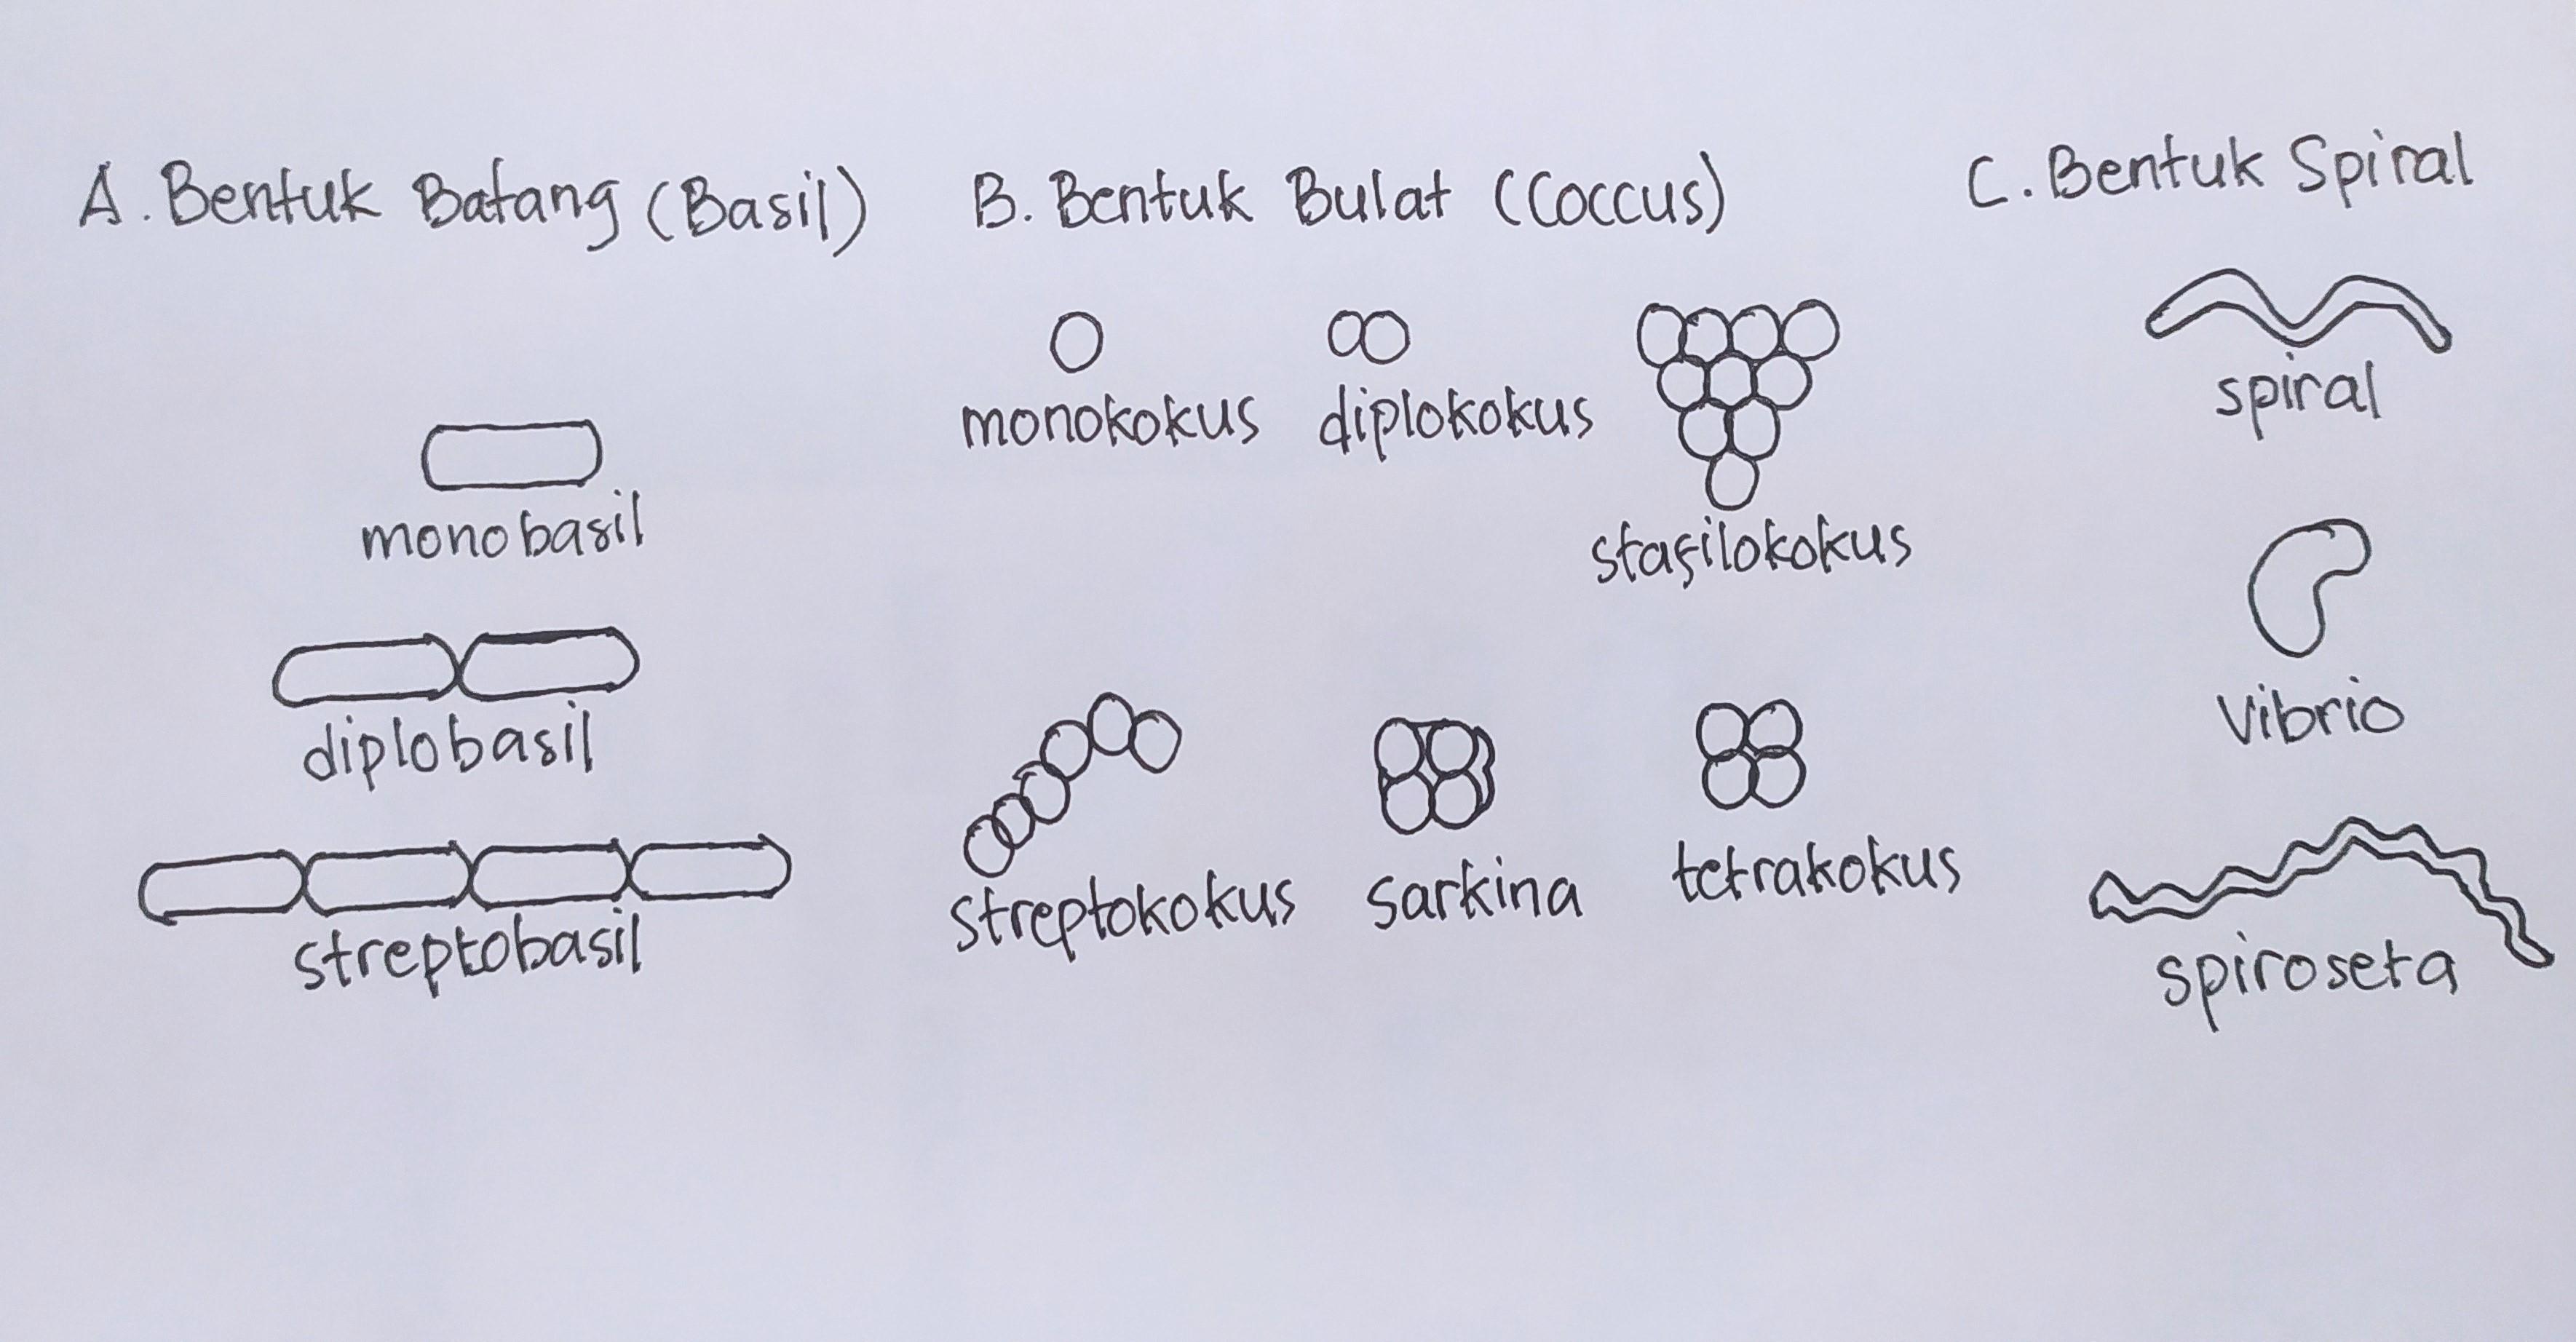 A. Bentuk Batang (Basil)
monobasil
diplobasil
streptobasil
B. Bentuk Bulat (Coccus)
monokokus
diplokokus
stafilokokus
streptokokus
sarkina
tetrakokus
C. Bentuk Spiral
spiral
vibrio
spiroseta